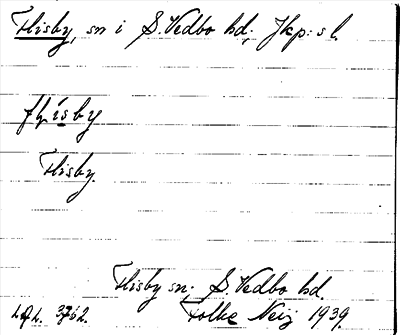 Flisby, sn i S. Vedbo hd, Jkp:s l.
flisby
Flisby.
Flisby sn, S. Vedbo hd.
Folke Neij 1939.